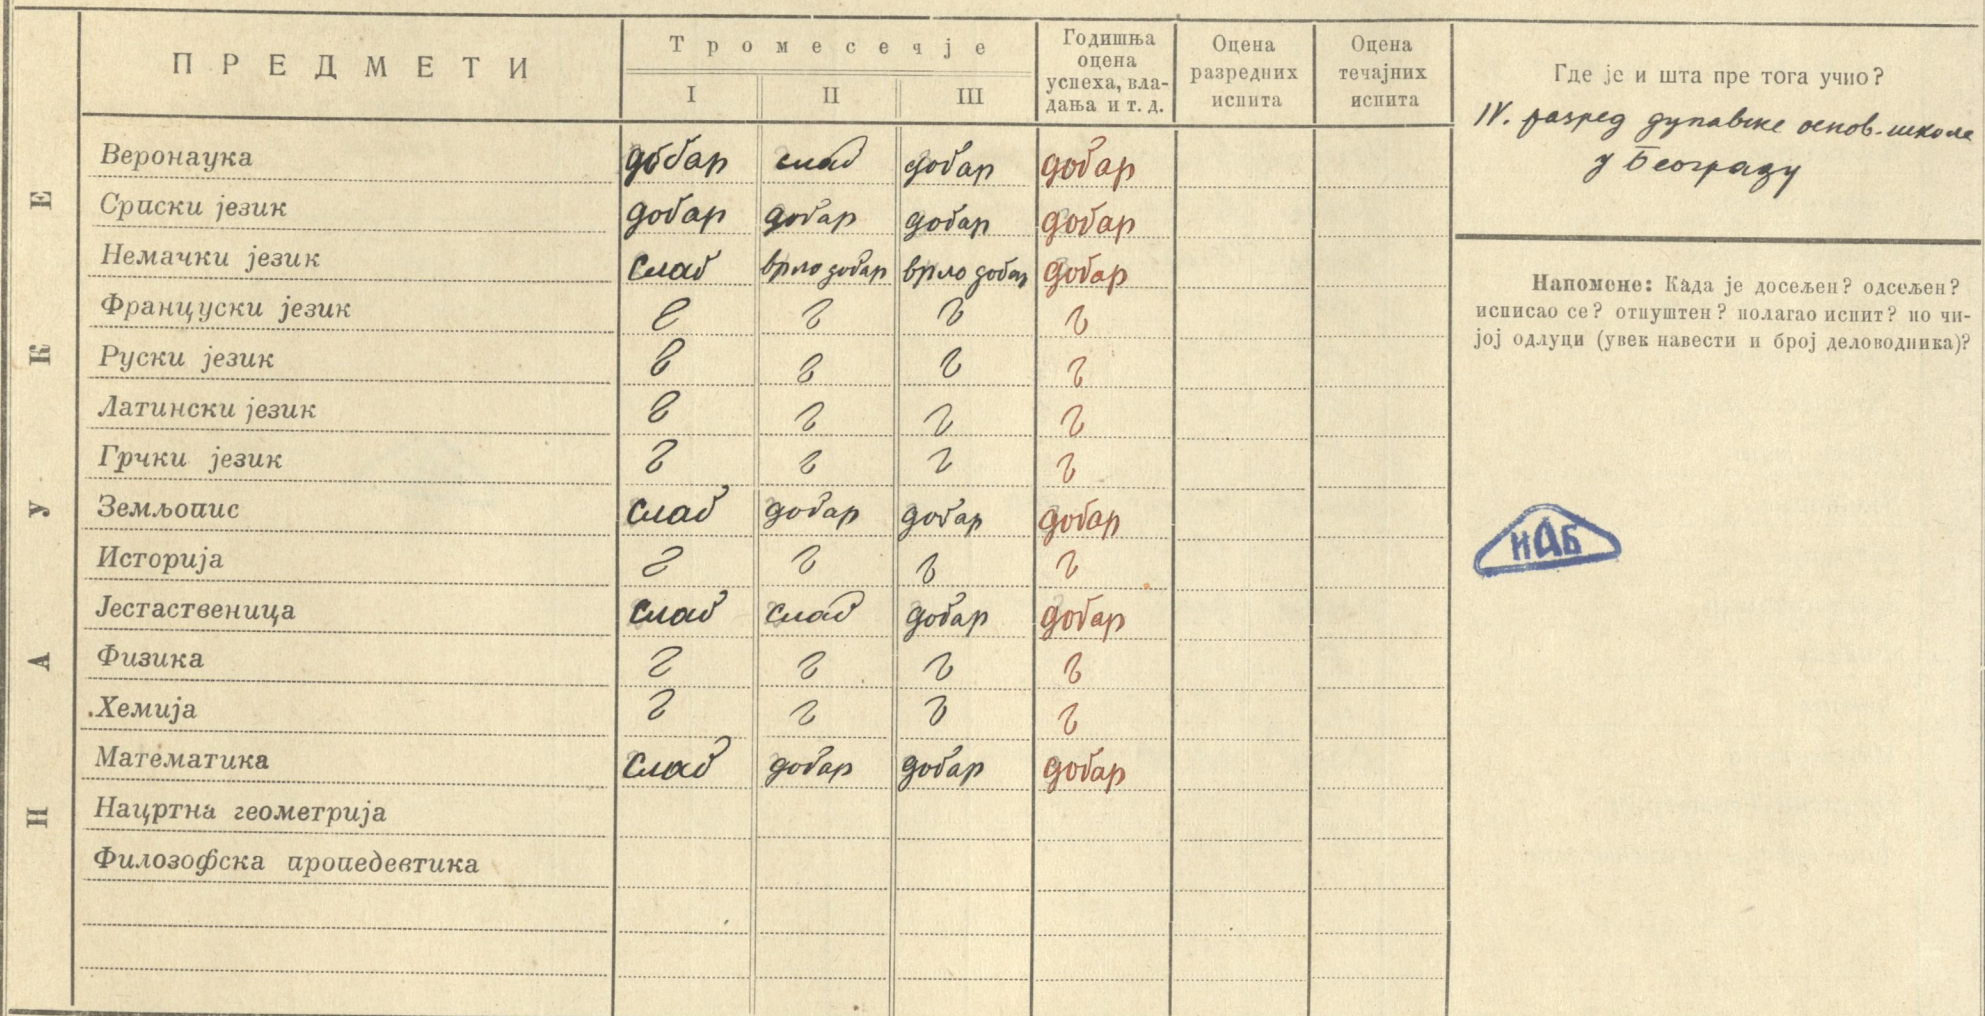 ПРЕДМЕТИ
Тромесечје
I II III
Годишња оцена успеха, вла-дања и т. д.
Оцена разредних испита
Оцена течајних испита
НАУКЕ
Веронаука добар слаб добар добар
Српски језик добар добар добар добар
Немачки језик слаб врло добар врло добар добар
Француски језик
Руски језик
Латински језик
Грчки језик
Земљопис слаб добар добар добар
Историја
Јестаственица слаб слаб добар добар
Физика
Хемија
Математика слаб добар добар добар
Нацртна геометрија
Филозофска пропедевтика
Где је и шта пре тога учио?
IV. разред дунавске основ. школе
у Београду
Напомене: Када је досељен? одсељен?
исписао се? отпуштен? полагао испит? по чи-
јој одлуци (увек навести и број деловодника)?
ИАБ